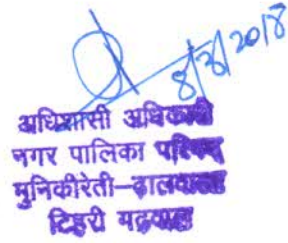 8/3/2018
अधिशासी अधिकारी
नगर पालिका परिषद
मुनिकीरेती-ढालवाला
टिहरी गढ़वाल